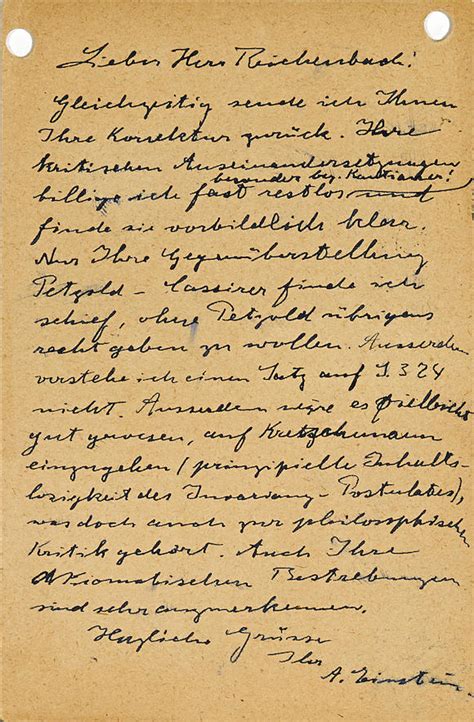 Lieber Herr Reichenbach!
Gleichzeitig sende ich Ihnen
Ihre Korrektur zurück. Ihre
kritischen Auseinandersetzungen
besonders bez. Kantianer!
billige ich fast restlos und
finde sie vorbildlich klar.
Nur Ihre Gegenüberstellung
Petzold - Cassirer finde ich
schief, ohne Petzold übrigens
recht geben zu wollen. Ausserdem
verstehe ich einen Satz auf S. 324
nicht. Ausserdem wäre es vielleicht
gut gewesen, auf Kretschmann
einzugehen (prinzipielle Inhalts-
losigkeit des Invarianz-Postulates),
was doch auch zur philosophischen
Kritik gehört. Auch Ihre
axiomatischen Bestrebungen
sind sehr anzuerkennen.
Herzliche Grüsse
Ihr
A. Einstein.